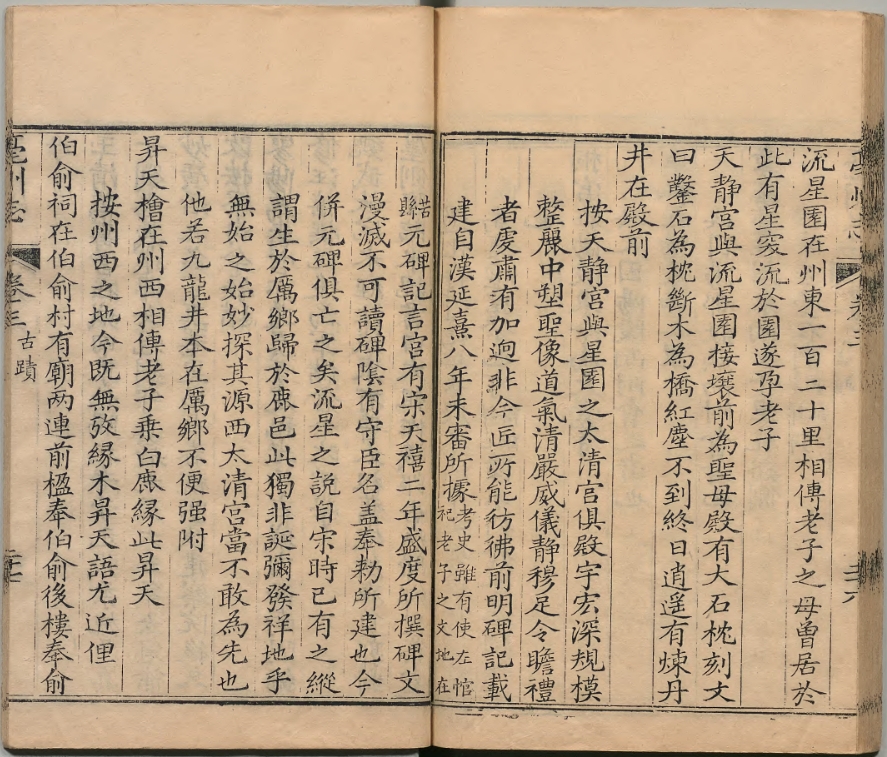 亳州志 卷三 三六
流星園在州東一百二十里相傳老子之母曾居於
此有星突流於園遂孕老子
天静宮與流星園接壤前為聖母殿有大石枕刻文
曰鑿石為枕斷木為橋紅塵不到終日逍遥有煉丹
井在殿前
按天静宮與星園之太清宮俱殿宇宏深規模
整麗中塑聖像道氣清嚴威儀静穆足令瞻禮
者虔肅有加迥非今匠所能彷彿前明碑記載
建自漢延熹八年未審所據考史雖有使左悺
祀老子之文地在
苦縣元碑記言宮有宋天禧二年盛度所撰碑文
漫滅不可讀碑陰有守臣名盖奉勅所建也今
併元碑俱亡之矣流星之説自宋時已有之縱
謂生於厲鄉歸於鹿邑此獨非誕彌發祥地乎
無始之始妙探其源西太清宮當不敢為先也
他若九龍井本在厲鄉不便强附
昇天檜在州西相傳老子乗白鹿縁此昇天
按州西之地今既無攷縁木昇天語尤近俚
伯俞祠在伯俞村有廟两連前楹奉伯俞後樓奉俞
亳州志 卷三 古蹟